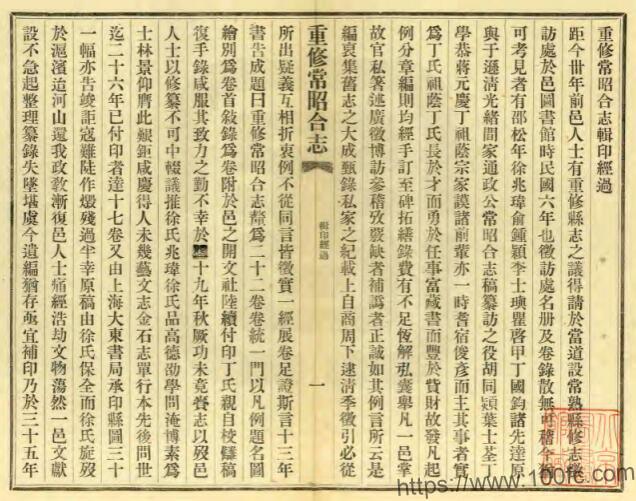 重修常昭合志輯印經過
距今卌年前邑人士有重修縣志之議得請於當道設常熟縣修志
訪處於邑圖書館時民國六年也徵訪處名册及卷錄散無可稽全
可考見者有邵松年徐兆瑋俞鍾穎李士瓚瞿啓甲丁國鈞諸先達原
與于遜清光緒間家通政公常昭合志稿纂訪之役胡同穎葉士荃丁
學恭蔣元慶丁祖蔭宗家謨諸前輩亦一時耆宿俊彥而主其事者實
爲丁氏祖蔭丁氏長於才而勇於任事富藏書而豐於貲財故發凡起
例分章編則均經手訂至碑拓繕錄費有不足恆解私囊舉凡一邑掌
故官私箸述廣徵博訪參稽攷覈缺者補譌者正誠如其例言所云是
編裒集舊志之大成甄錄私家之紀載上自商周下逮清季徵引必從
重修常昭合志
輯印經過
一
所出疑義互相折衷例不從同言皆徵實一經展卷足證斯言十三年
書告成題曰重修常昭合志釐爲二十二卷卷統一門以凡例題名圖
繪別爲卷首敍錄爲卷附於邑之開文社陸續付印丁氏親自校讎稿
復手錄咸服其致力之勤不幸於十九年秋厥功未竟齎志以歿邑
人士以修纂不可中輟議推徐氏兆瑋徐氏品高德劭學問淹博素爲
士林景仰膺此艱鉅咸慶得人未幾藝文志金石志單行本先後問世
迄二十六年已付印者達十七卷又由上海大東書局承印縣圖三十
一幅亦告竣詎寇難陡作燬殘過半幸原稿由徐氏保全而徐氏旋歿
於滬濱迨河山還我政敎漸復邑人士痛經浩劫文物蕩然一邑文獻
設不急起整理纂錄失墜堪虞今遺編猶存亟宜補印乃於三十五年
https://www.100fc.com